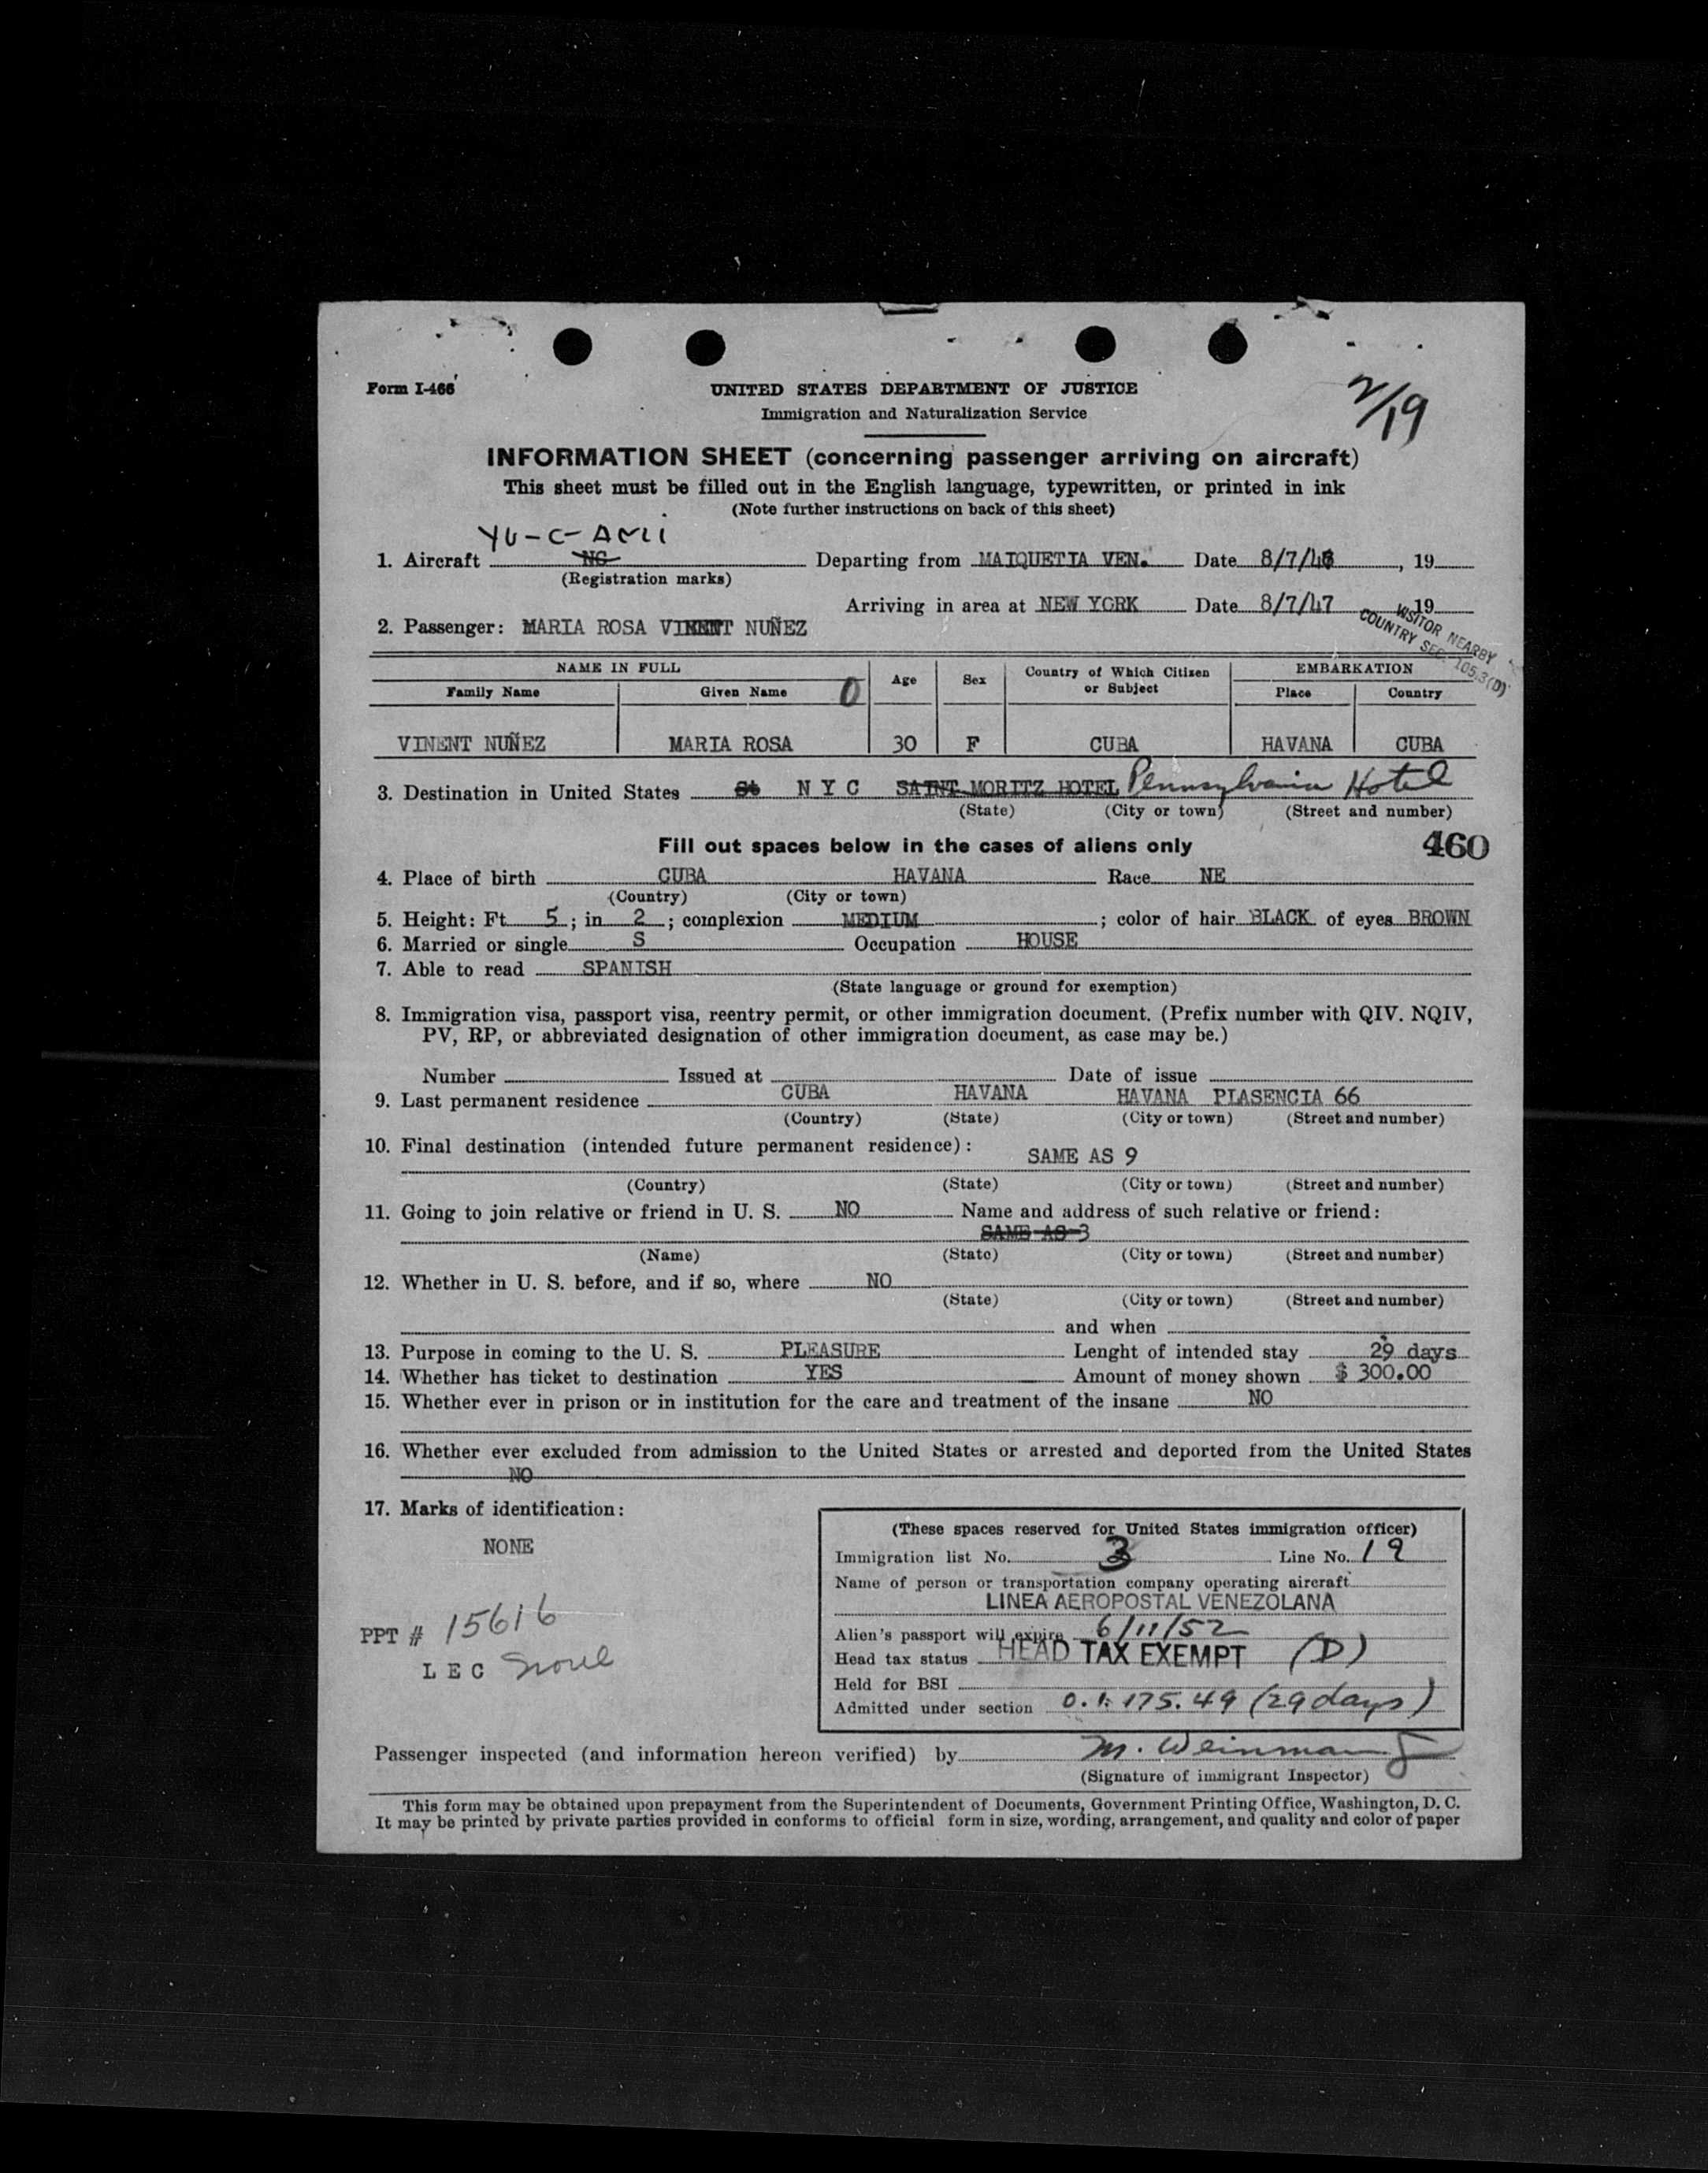 2/19
Form I-466
UNITED STATES DEPARTMENT OF JUSTICE
Immigration and Naturalization Service
INFORMATION SHEET (concerning passenger arriving on aircraft)
This sheet must be filled out in the English language, typewritten, or printed in ink
(Note further instructions on back of this sheet)
1. Aircraft NC Departing from MAIQUETIA VEN. Date 8/7/4 , 19
(Registration marks)
Arriving in area at NEW YORK Date 8/7/47 19
VISITOR NEARBY
COUNTRY SEC. 105.3(D)
2. Passenger: MARIA ROSA VINENT NUÑEZ
NAME IN FULL Age Sex Country of Which Citizen or Subject EMBARKATION
Family Name Given Name 0 Place Country
VINENT NUÑEZ MARIA ROSA 30 F CUBA HAVANA CUBA
3. Destination in United States St N Y C SAINT MORITZ HOTEL Pennsylvania Hotel
(State) (City or town) (Street and number)
Fill out spaces below in the cases of aliens only 460
4. Place of birth CUBA HAVANA Race NE
(Country) (City or town)
5. Height: Ft. 5 ; in 2 ; complexion MEDIUM ; color of hair BLACK of eyes BROWN
6. Married or single S Occupation HOUSE
7. Able to read SPANISH
(State language or ground for exemption)
8. Immigration visa, passport visa, reentry permit, or other immigration document. (Prefix number with QIV. NQIV,
PV, RP, or abbreviated designation of other immigration document, as case may be.)
Number Issued at Date of issue
9. Last permanent residence CUBA HAVANA HAVANA PLASENCIA 66
(Country) (State) (City or town) (Street and number)
10. Final destination (intended future permanent residence): SAME AS 9
(Country) (State) (City or town) (Street and number)
11. Going to join relative or friend in U. S. NO Name and address of such relative or friend:
SAME AS 3
(Name) (State) (City or town) (Street and number)
12. Whether in U. S. before, and if so, where NO
(State) (City or town) (Street and number)
and when
13. Purpose in coming to the U. S. PLEASURE Lenght of intended stay 29 days
14. Whether has ticket to destination YES Amount of money shown $ 300.00
15. Whether ever in prison or in institution for the care and treatment of the insane NO
16. Whether ever excluded from admission to the United States or arrested and deported from the United States
NO
17. Marks of identification:
NONE
PPT # 15616
L E C
(These spaces reserved for United States immigration officer)
Immigration list No. 3 Line No. 19
Name of person or transportation company operating aircraft
LINEA AEROPOSTAL VENEZOLANA
Alien's passport will expire 6/11/52
Head tax status HEAD TAX EXEMPT (D)
Held for BSI
Admitted under section 0.1. 175.49 (29 days)
Passenger inspected (and information hereon verified) by M. Weinman
(Signature of immigrant Inspector)
This form may be obtained upon prepayment from the Superintendent of Documents, Government Printing Office, Washington, D. C.
It may be printed by private parties provided in conforms to official form in size, wording, arrangement, and quality and color of paper